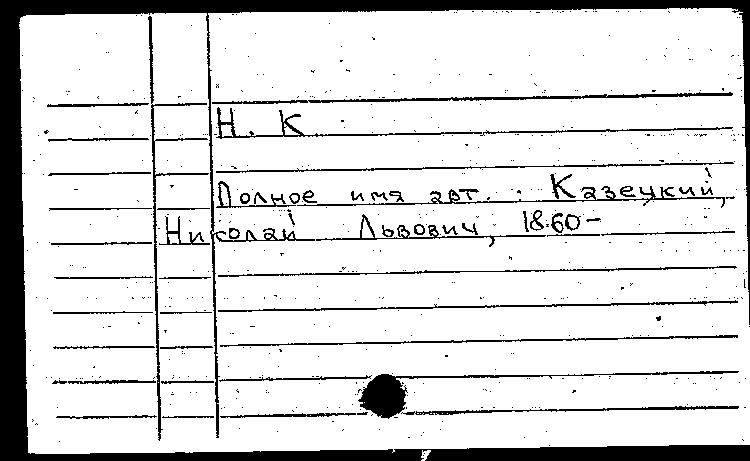 Н. К
Полное имя авт. : Казецкий,
Николай Львович, 1860–